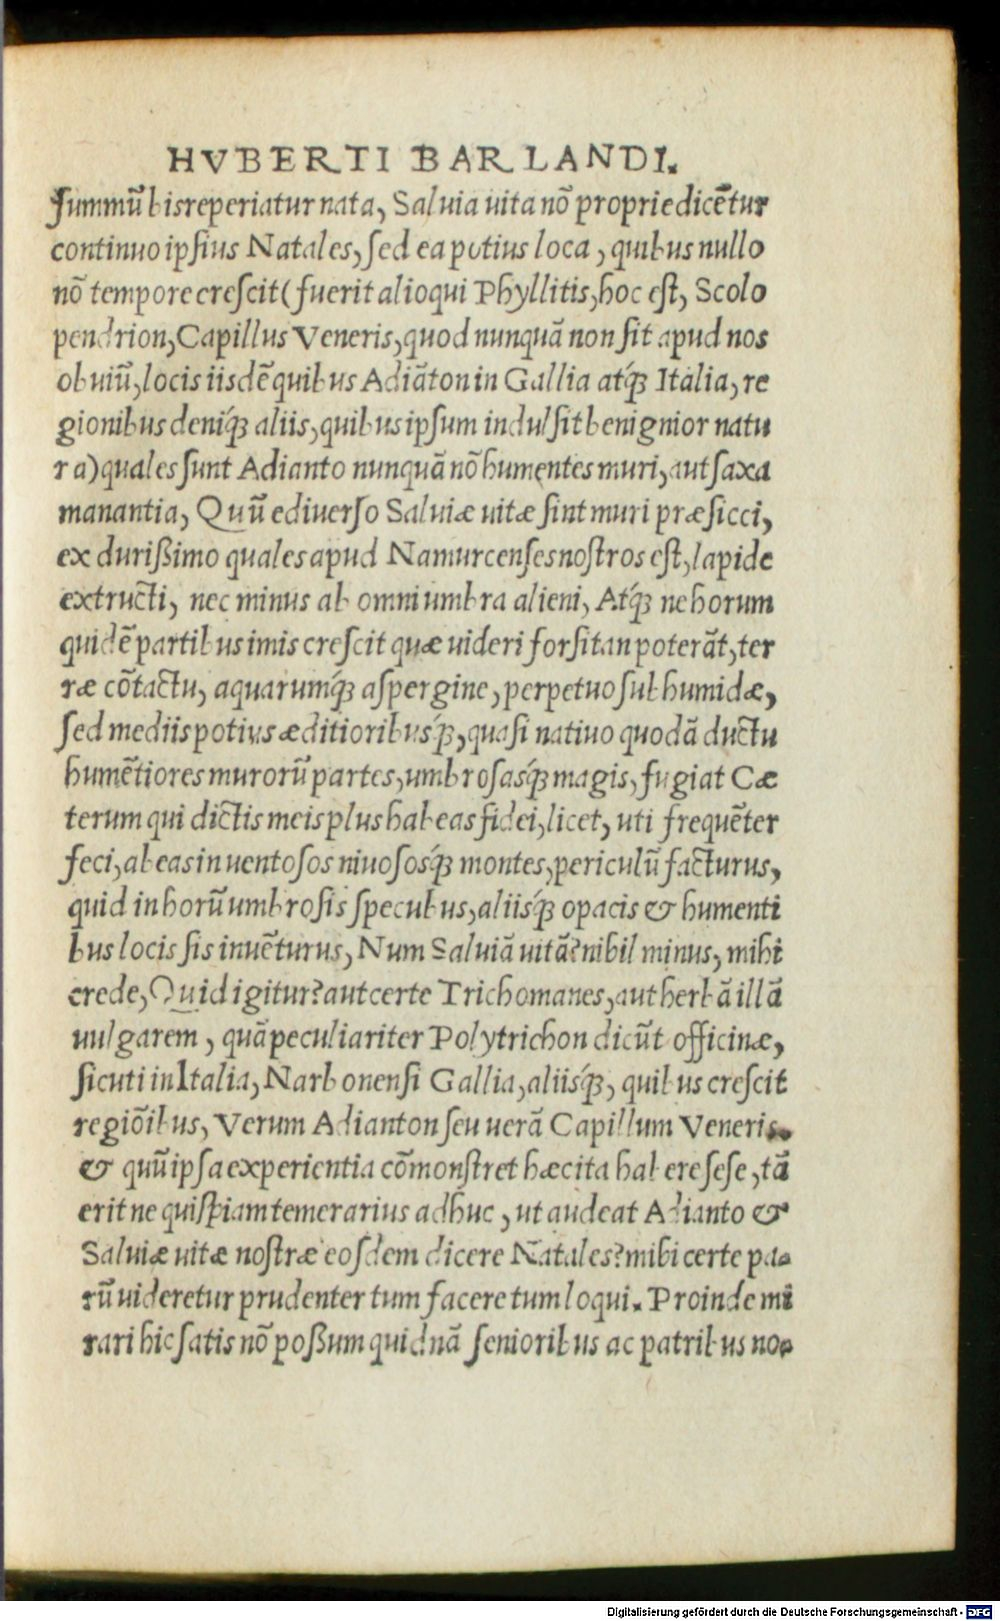 HVBERTI BARLANDI.
ſummũ bis reperiatur nata, Saluia uita nõ proprie dicẽtur
continuo ipſius Natales, ſed ea potius loca, quibus nullo
nõ tempore creſcit (fuerit alioqui Phyllitis, hoc eſt, Scolo
pendrion, Capillus Veneris, quod nunquã non ſit apud nos
obuiũ, locis iisdẽ quibus Adiãton in Gallia atq́; Italia, re
gionibus deniq́; aliis, quibus ipſum indulſit benignior natu
ra) quales ſunt Adianto nunquã nõ humentes muri, aut ſaxa
manantia, Quũ ediuerſo Saluiæ uitæ ſint muri præſicci,
ex durißimo quales apud Namurcenſes noſtros eſt, lapide
extructi, nec minus ab omni umbra alieni, Atq́; ne horum
quidẽ partibus imis creſcit quæ uideri forſitan poterãt, ter
ræ cõtactu, aquarumq́; aſpergine, perpetuo ſubhumidæ,
ſed mediis potius æditioribusq́;, quaſi natiuo quodã ductu
humẽtiores murorũ partes, umbroſasq́; magis, fugiat Cæ
terum qui dictis meis plus habeas fidei, licet, uti frequẽter
feci, abeas in uentoſos niuoſosq́; montes, periculũ facturus,
quid in horũ umbroſis ſpecubus, aliisq́; opacis & humenti
bus locis ſis inuẽturus, Num Saluiã uitã? nihil minus, mihi
crede, Quid igitur? aut certe Trichomanes, aut herbã illã
uulgarem, quã peculiariter Polytrichon dicũt officinæ,
ſicuti in Italia, Narbonenſi Gallia, aliisq́;, quibus creſcit
regiõibus, Verum Adianton ſeu uerã Capillum Veneris.
& quũ ipſa experientia cõmonſtret hæc ita habere ſeſe, tã
erit ne quiſpiam temerarius adhuc, ut audeat Adianto &
Saluiæ uitæ noſtræ eoſdem dicere Natales? mihi certe pa-
rũ uideretur prudenter tum facere tum loqui. Proinde mi
rari hic ſatis nõ poßum quid nã ſenioribus ac patribus no-
Digitalisierung gefördert durch die Deutsche Forschungsgemeinschaft - DFG